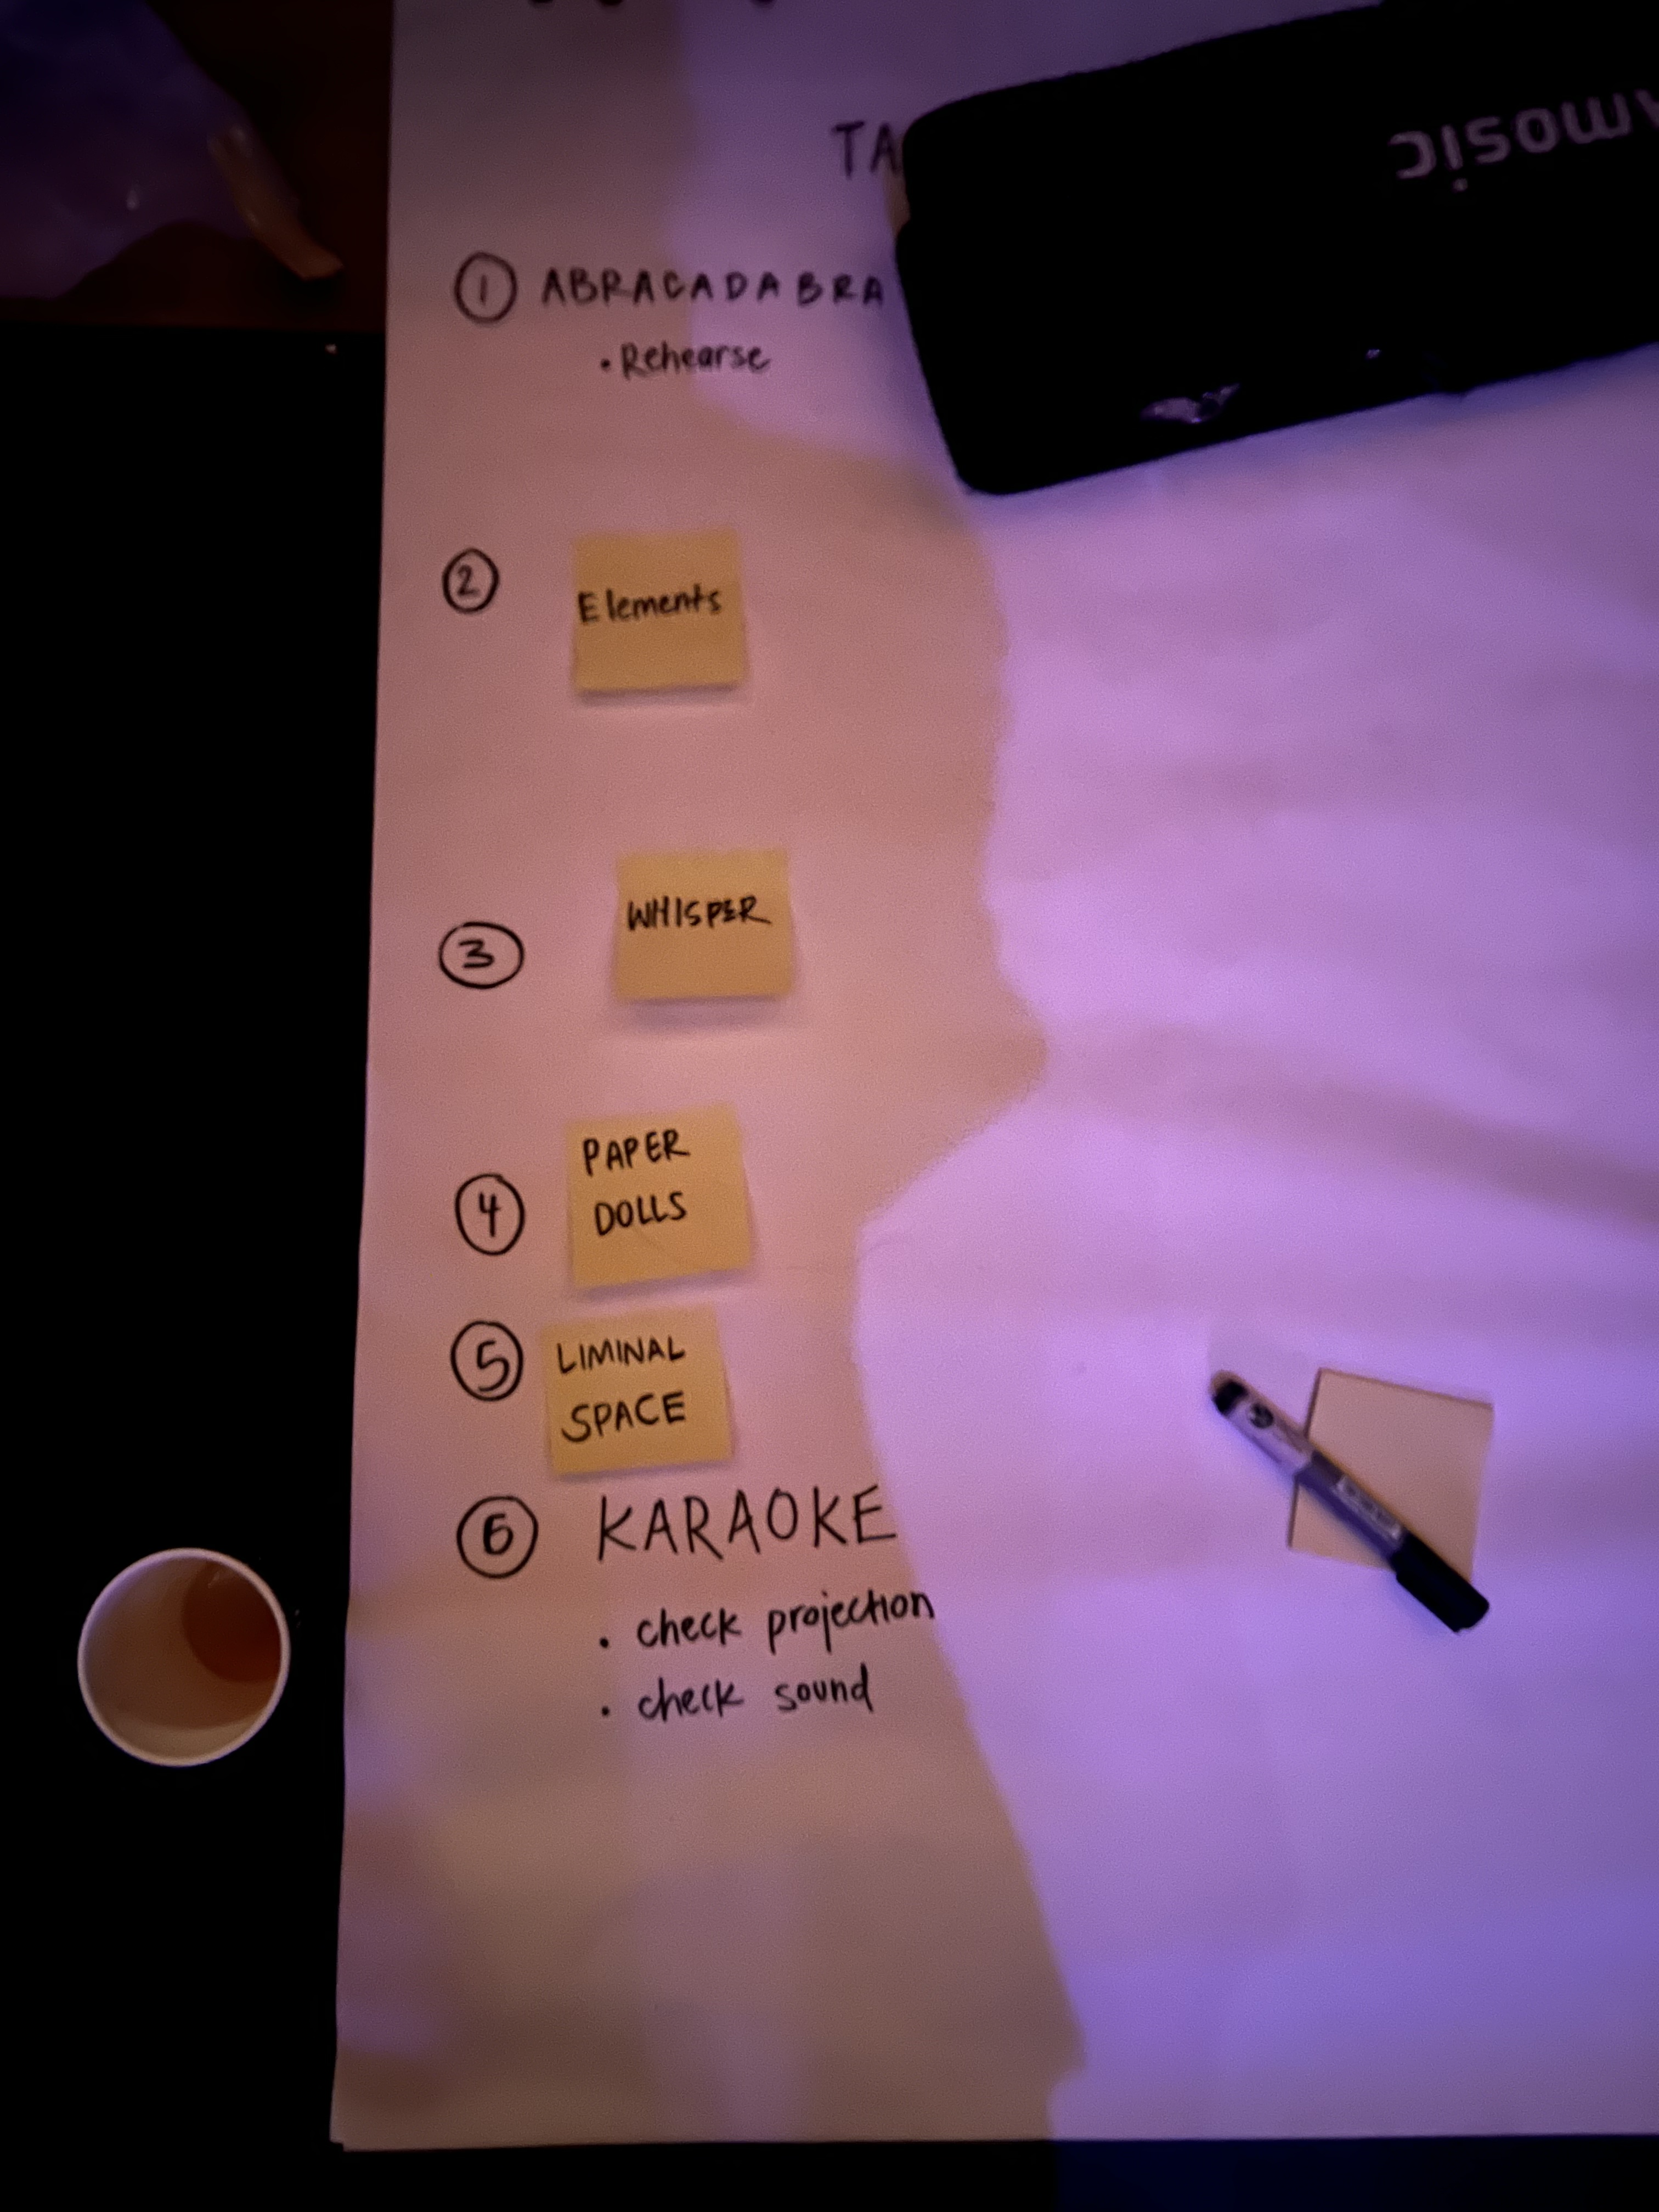 TA
① ABRACADABRA
• Rehearse
② Elements
③ WHISPER
④ PAPER
DOLLS
⑤ LIMINAL
SPACE
⑥ KARAOKE
• check projection
• check sound